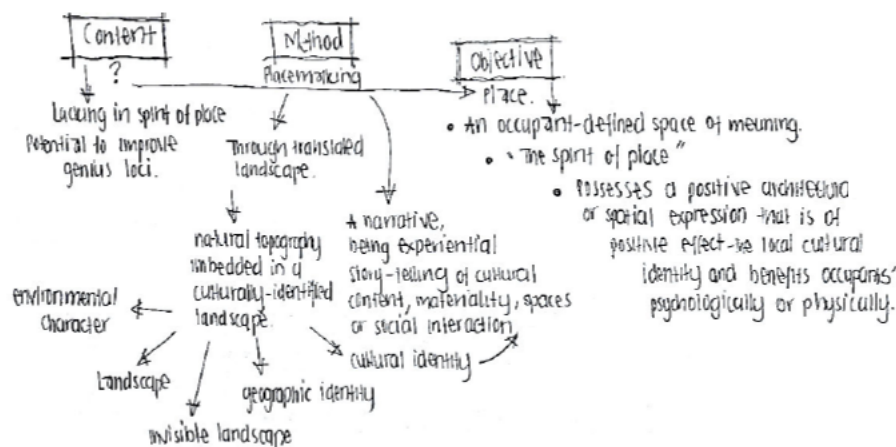 Content
?
Lacking in spirit of place
Potential to improve
genius loci.
Method
Placemarking
Through translated
landscape.
natural topography
imbedded in a
culturally-identified
landscape.
environmental
character
Landscape
invisible landscape
geographic identity
cultural identity
A narrative,
being experiential
story-telling of cultural
content, materiality, spaces
or social interaction
Objective
Place.
• An occupant-defined space of meaning.
• "The spirit of place"
• Possesses a positive architectura
or spatial expression that is of
positive effect the local cultural
identity and benefits occupants'
psychologically or physically.